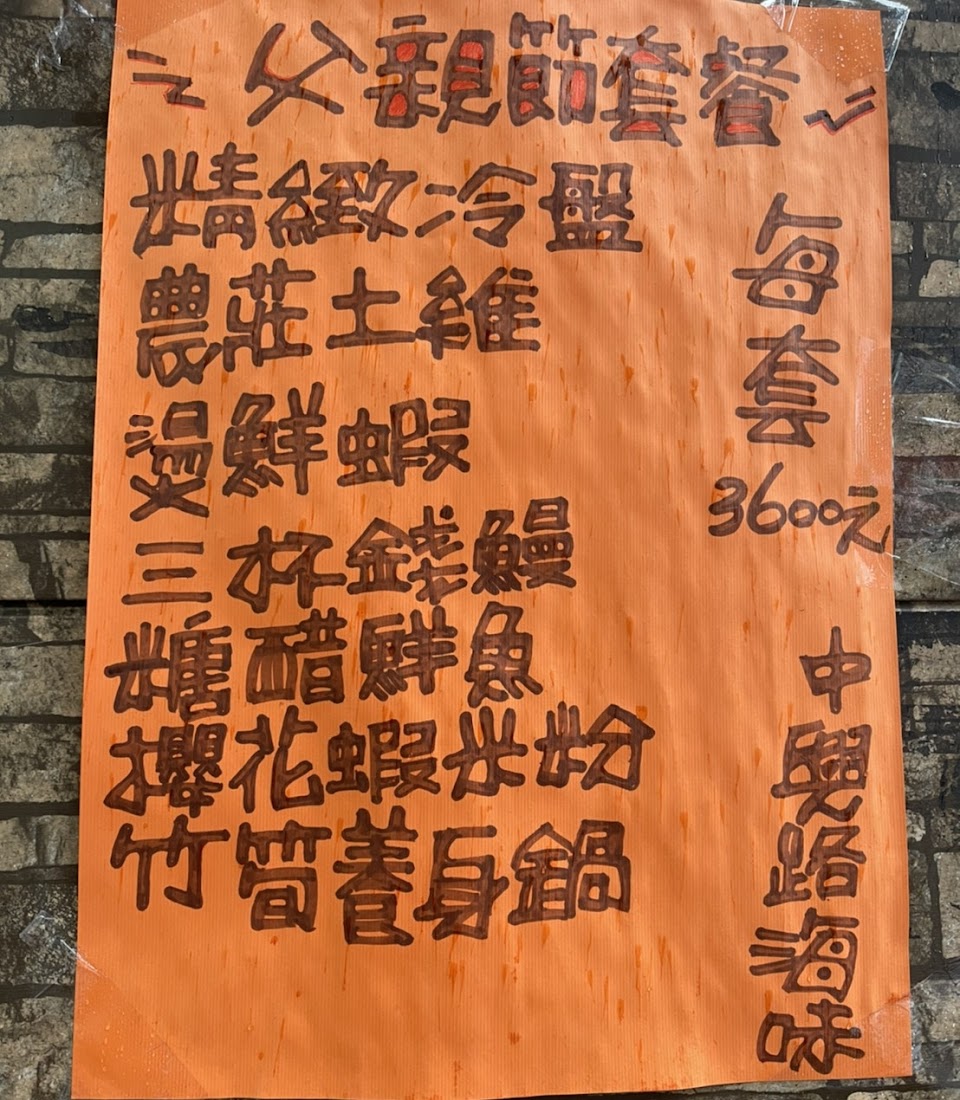 父親節套餐
精緻冷盤
農莊土維
燙鮮蝦
三杯錢鰻
糖醋鮮魚
櫻花蝦米粉
竹筍養身鍋
每套
3600元
中興路海味